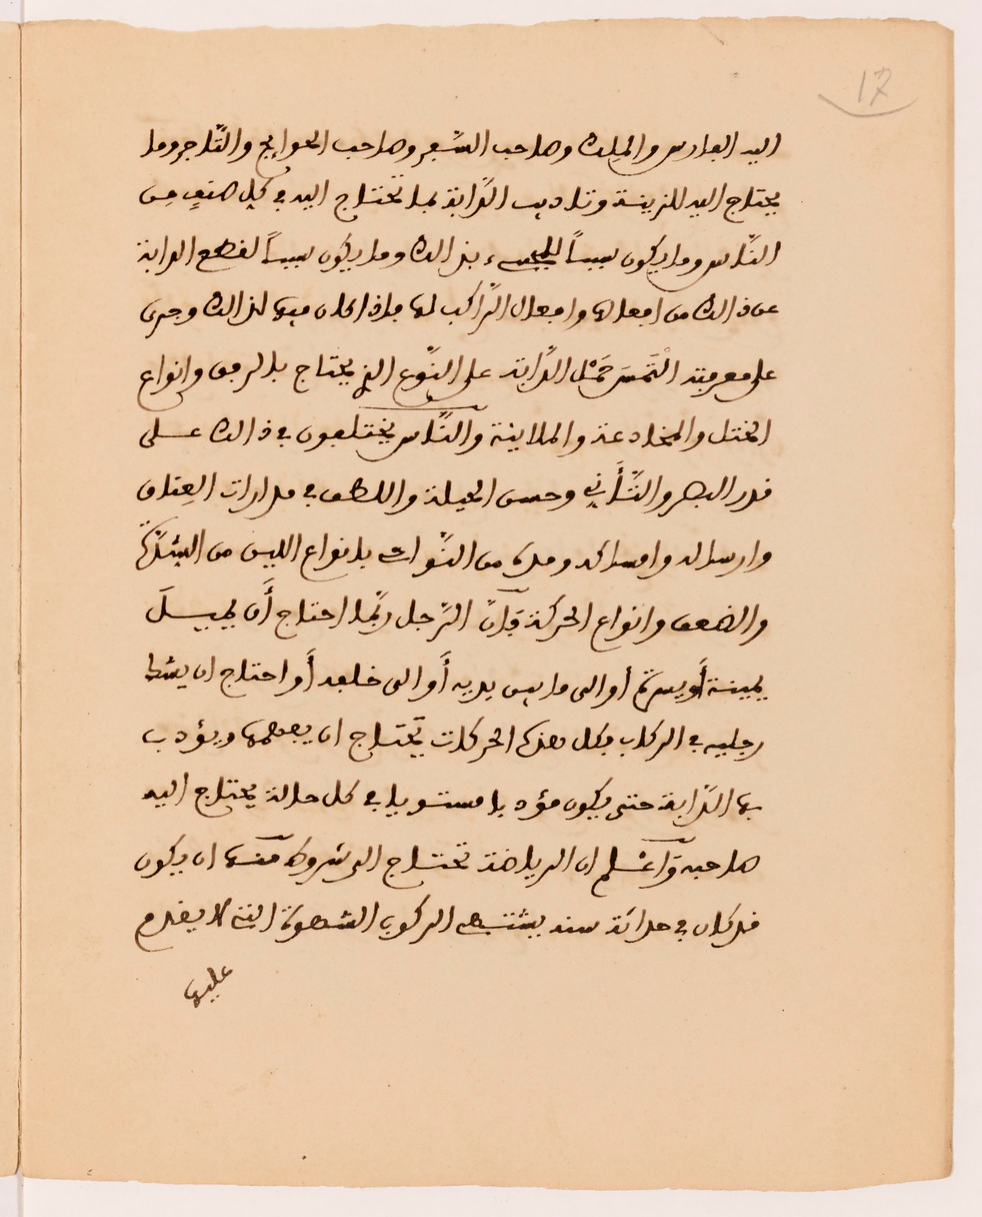 17
اليه الفارس والملك وصاحب السفر وصاحب الحوايج والتّاجر وما
يحتاج اليه للزينة وتاديب الدّابة بما تحتاج اليه في كل صنف من
النّاس وما يكون سبباً بذالك وما يكون سبباً لقطع الدابة
عن ذالك من افعالها وافعال الرّاكب لها فاذا كان فيها لذالك وجرى
على معرفته الْتَمَسَ حَمْل الدّابة على النّوع الذي يحتاج بالرفق وانواع
الختل والمخادعة والملاينة والنّاس يختلفون في ذالك على
قدر البصر والتّأَنّي وحسن الحيلة واللطف في مدارات العِنان
وارساله وامساكه وملء من النّوات بانواع اللين من الشدّة
والضعف وانواع الحركة فإنّ الرّجل ربّما احتاج أَن يميلَ
يمينة أَو يسرة أو الى ما بين يديه أَو الى خلفه أَو احتاج ان يشد
رجليه في الركاب فكل هذه الحركات يَحْتاج ان يعطيها ويؤدب
بها الدّابة حتى يكون مؤدبا مستويا في كل حالة يحتاج اليه
صاحبه وَاعْلم ان الرياضة تحتاج الى شروط منها ان يكون
قد كان في حداثة سنه يشتهي الركوب الشهوة التي لا يقدم
عليها